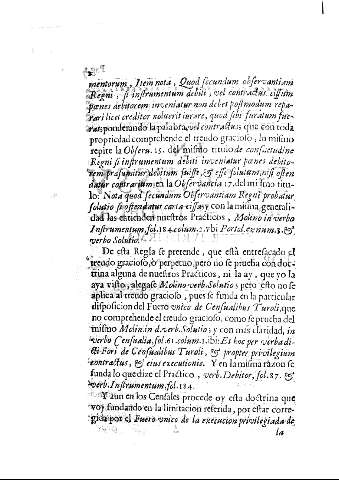 2
mentorum, Item nota, Quod secundum observantiam
Regni, si instrumentum debiti, vel contractus eiusdem
penes arbitorem inveniatur non debet postmodum repa-
rari licet creditor noluerit iurare, quod sibi furatum fue-
rat; ponderando la palabra vel contractus; que con toda
propriedad comprehende el treudo gracioso, lo mismo
repite la Observ. 15. del mismo titulo de consuetudine
Regni si instrumentum debiti inveniatur penes debito-
rem præsumitur debitum fuisse, & esse solutum, nisi osten
datur contrarium en la Observancia 17. del mismo titu-
lo: Nota quod secundum Observantiam Regni probatur
solutio si ostendatur carta cissa; y con la misma generali-
dad las entienden nuestros Practicos, Molino in verbo
Instrumentum fol. 184. colum. 2. vbi Portol. ex num. 3. &
verbo Solutio.
De esta Regla se pretende, que està entresacado el
treudo gracioso, ò perpetuo, pero no se prueba con doc-
trina alguna de nuestros Practicos, ni la ay, que yo la
aya visto, alegase Molino verb. Solutio; pero esto no se
aplica al treudo gracioso, pues se funda en la particular
disposicion del Fuero vnico de Censualibus Turoli, que
no comprehende el treudo gracioso, como se prueba del
mismo Molin. in d. verb. Solutio; y con mas claridad, in
verbo Censualia, fol. 61. colum. 1. ibi: Et hoc per verba di-
cti Fori de Censualibus Turoli, & propter privilegium
contractus, & eius executionis. Y en la misma razon se
funda lo que dize el Practico, verb. Debitor, fol. 87. &
verb. Instrumentum, fol. 184.
Y aun en los Censales procede oy esta doctrina que
voy fundando en la limitacion referida, por estar corre-
gida por el Fuero vnico de la execucion privilegiada de
la